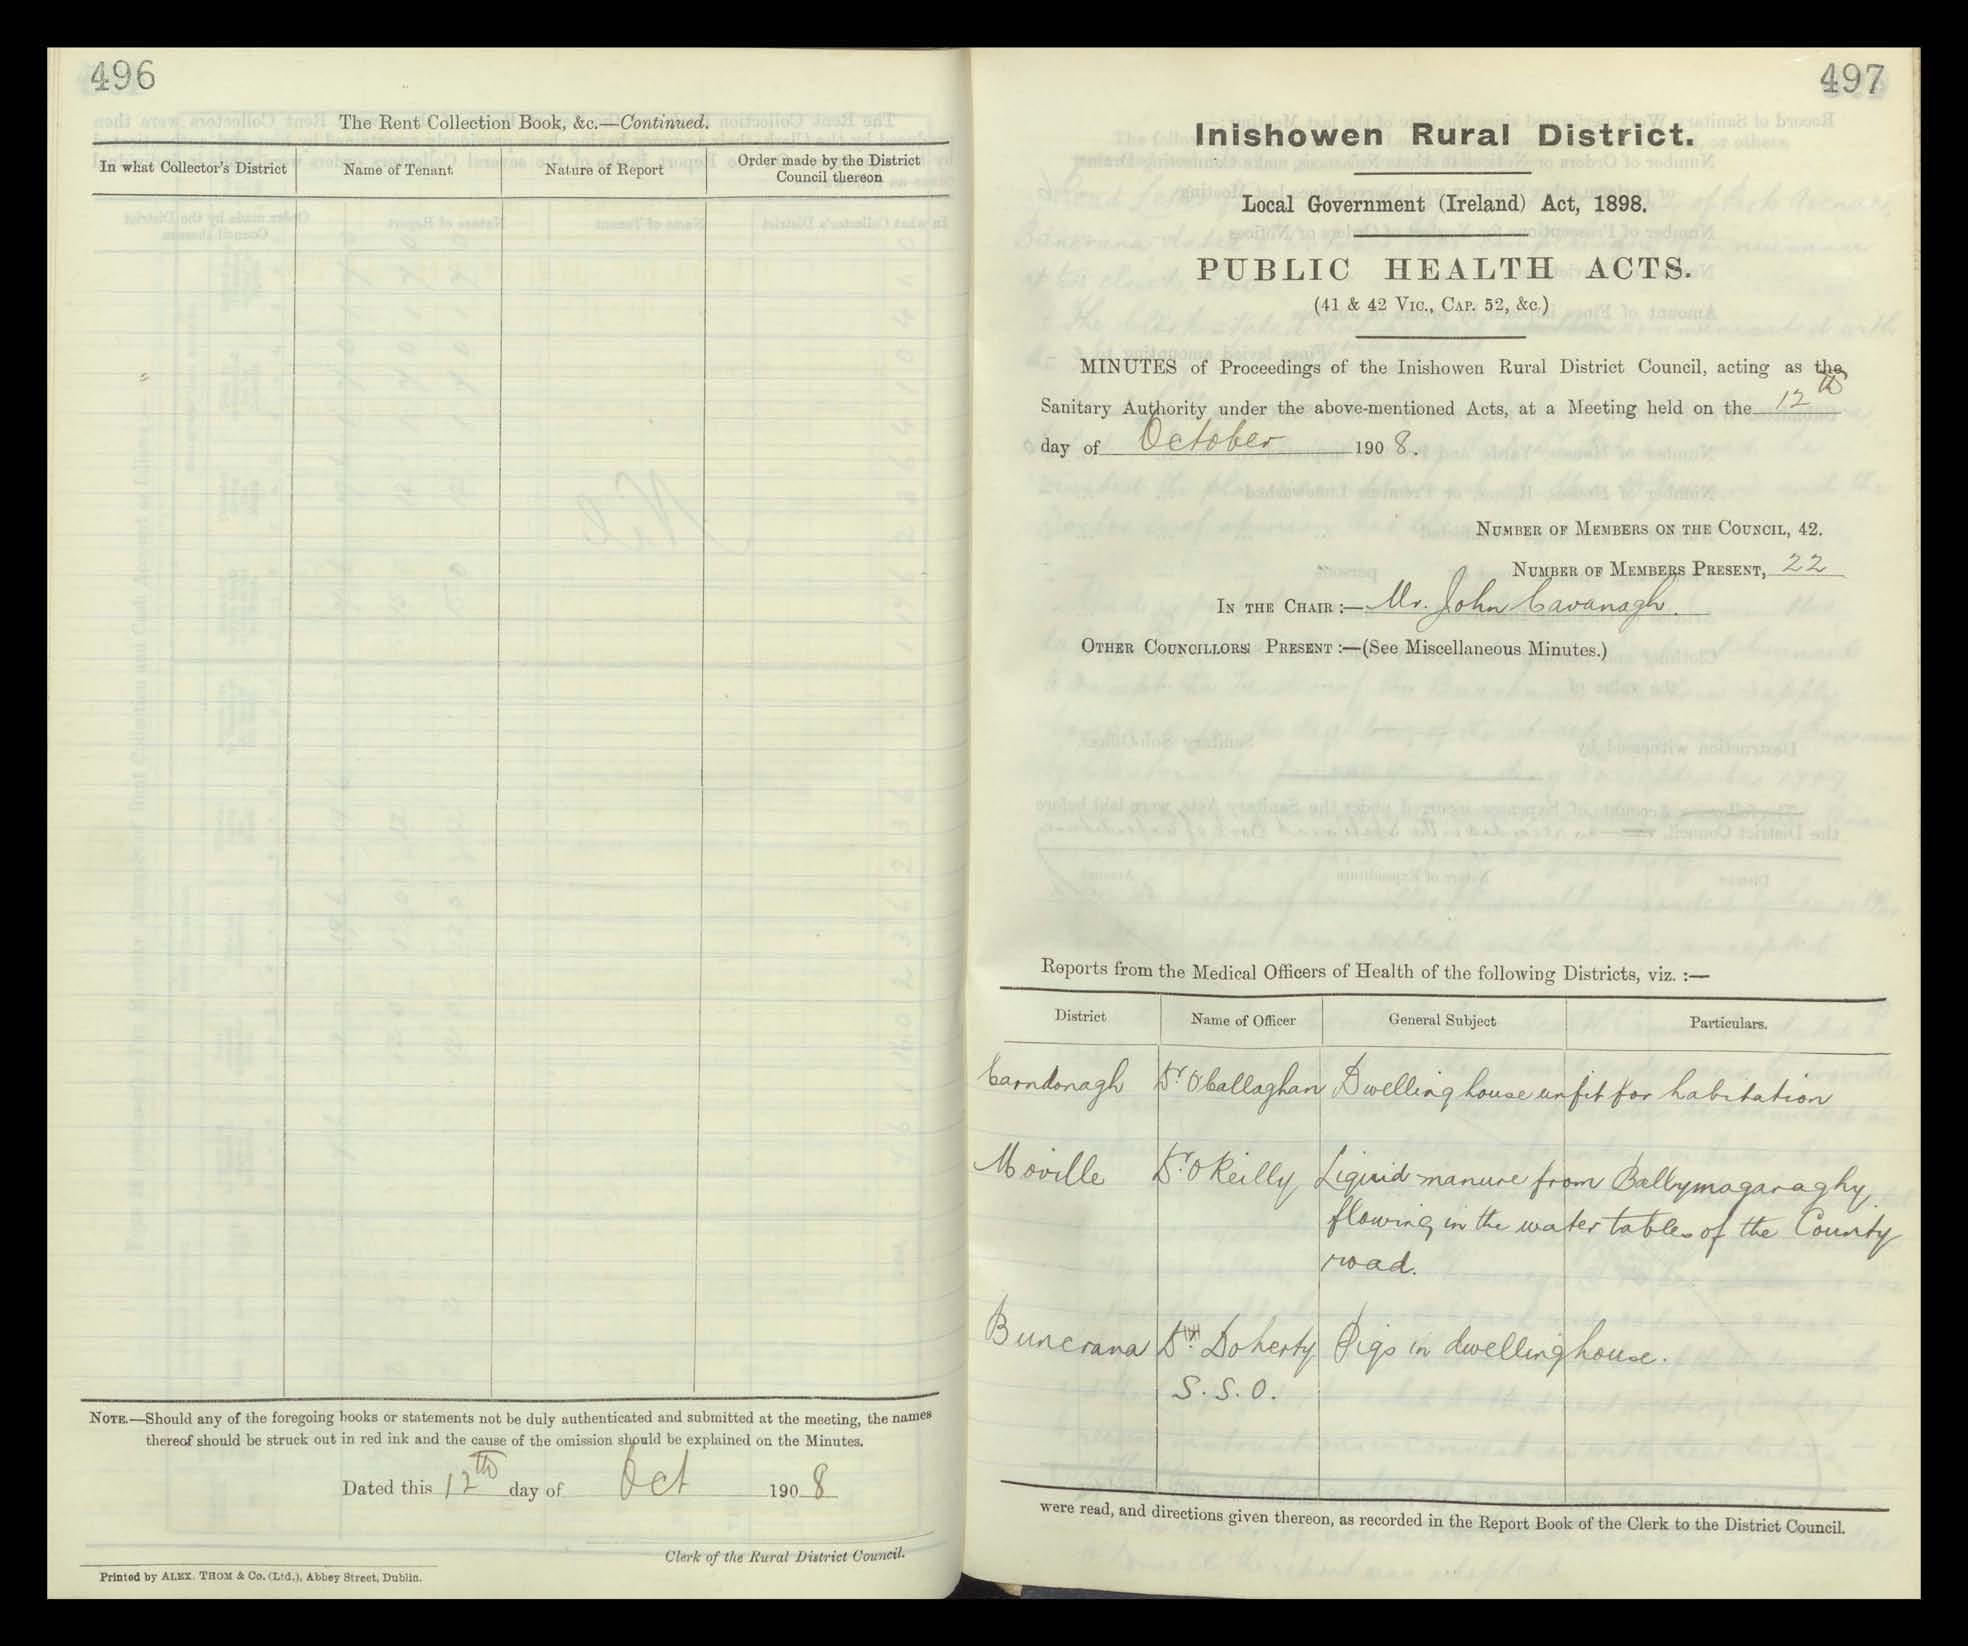 496
The Rent Collection Book, &c.—Continued.
In what Collector's District Name of Tenant Nature of Report Order made by the District Council thereon
NOTE.—Should any of the foregoing books or statements not be duly authenticated and submitted at the meeting, the names
thereof should be struck out in red ink and the cause of the omission should be explained on the Minutes.
Dated this 12th day of Oct 1908
Clerk of the Rural District Council.
Printed by ALEX. THOM & Co. (Ltd.), Abbey Street, Dublin.
497
Inishowen Rural District.
Local Government (Ireland) Act, 1898.
PUBLIC HEALTH ACTS.
(41 & 42 VIC., CAP. 52, &c.)
MINUTES of Proceedings of the Inishowen Rural District Council, acting as the
Sanitary Authority under the above-mentioned Acts, at a Meeting held on the 12th
day of October 1908.
NUMBER OF MEMBERS ON THE COUNCIL, 42.
NUMBER OF MEMBERS PRESENT, 22
IN THE CHAIR :— Mr. John Cavanagh.
OTHER COUNCILLORS PRESENT :—(See Miscellaneous Minutes.)
Reports from the Medical Officers of Health of the following Districts, viz. :—
District Name of Officer General Subject Particulars.
Carndonagh Dr. O'Callaghan Dwelling house unfit for habitation
Moville Dr. O'Reilly Liquid manure from Ballymagaraghy
flowing in the water tables of the County
road.
Buncrana Doherty Pigs in dwelling house.
S.S.O.
were read, and directions given thereon, as recorded in the Report Book of the Clerk to the District Council.